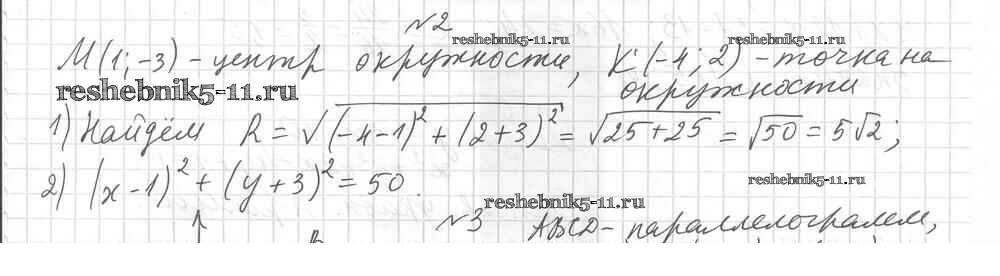 №2
M(1;-3) - центр окружности, K(-4;2) - точка на
окружности
reshebnik5-11.ru
reshebnik5-11.ru
reshebnik5-11.ru
1) Найдём R = √((-4-1)² + (2+3)²) = √(25+25) = √50 = 5√2;
2) (x-1)² + (y+3)² = 50.
reshebnik5-11.ru
reshebnik5-11.ru
№3 ABCD - параллелограмм,